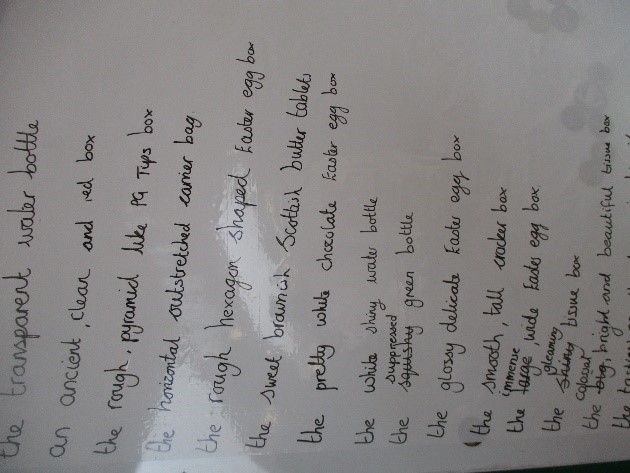 the transparent water bottle
an ancient, clean and red box
the rough, pyramid like PG Tips box
the horizontal outstretched carrier bag
the rough hexagon shaped Easter egg box
the sweet brownish Scottish butter tablets
the pretty white chocolate Easter egg box
the white shiny water bottle
suppressed
the squishy green bottle
the glossy delicate Easter egg box
the smooth, tall cracker box
immense
the large, wide Easter egg box
gleamery
the shiny tissue box
colossal
the big, bright and beautiful tissue box
the